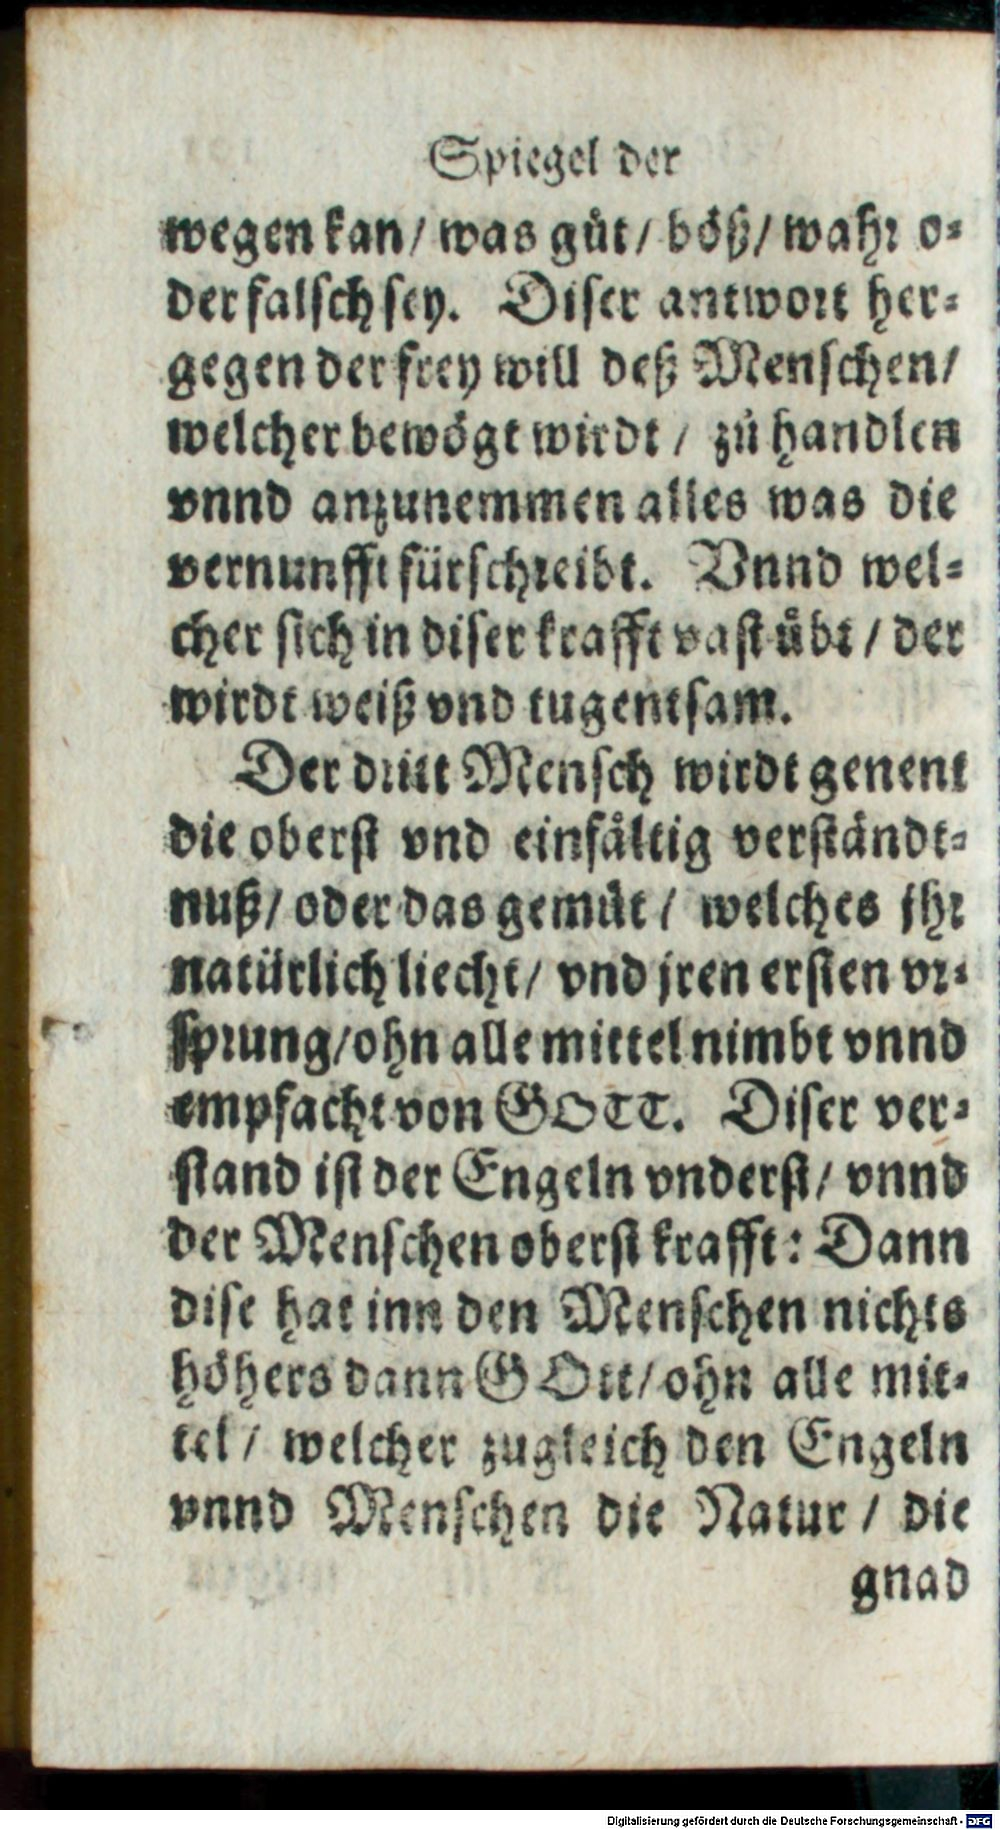 Spiegel der
wegen kan/ was gůt/ böß/ wahr o⸗
der falsch sey. Diser antwort her⸗
gegen der frey will deß Menschen/
welcher bewögt wirdt / zů handlen
vnnd anzunemmen alles was die
vernunfft fürschreibt. Vnnd wel⸗
cher sich in diser krafft vast übt / der
wirdt weiß vnd tugentsam.
Der dritt Mensch wirdt genent
die oberst vnd einfältig verständt⸗
nuß/ oder das gemüt / welches jhr
natürlich liecht/ vnd jren ersten vr⸗
sprung/ohn alle mittel nimbt vnnd
empfacht von GOTT. Diser ver⸗
stand ist der Engeln vnderst/ vnnd
der Menschen oberst krafft: Dann
dise hat inn den Menschen nichts
höhers dann GOtt/ohn alle mit⸗
tel / welcher zugleich den Engeln
vnnd Menschen die Natur / die
gnad
Digitalisierung gefördert durch die Deutsche Forschungsgemeinschaft - DFG